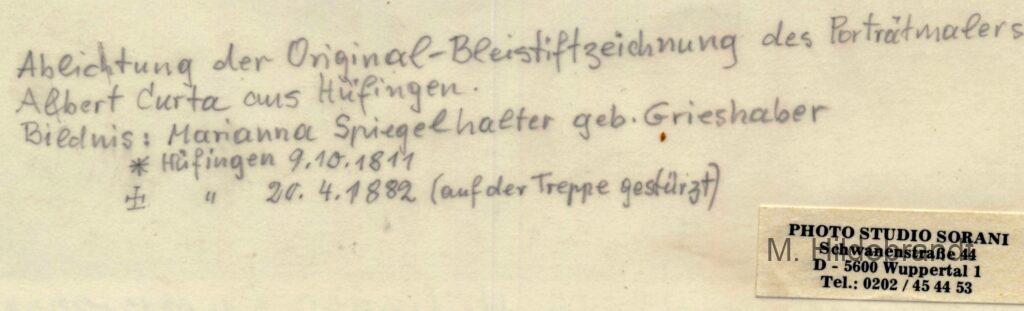 Ablichtung der Original-Bleistiftzeichnung des Porträtmalers
Albert Curta aus Hüfingen.
Bildnis: Marianna Spiegelhalter geb. Grieshaber
* Hüfingen 9.10.1811
✠ " 20.4.1882 (auf der Treppe gestürzt)
PHOTO STUDIO SORANI
Schwanenstraße 44
M. Hildebrandt
D - 5600 Wuppertal 1
Tel.: 0202 / 45 44 53